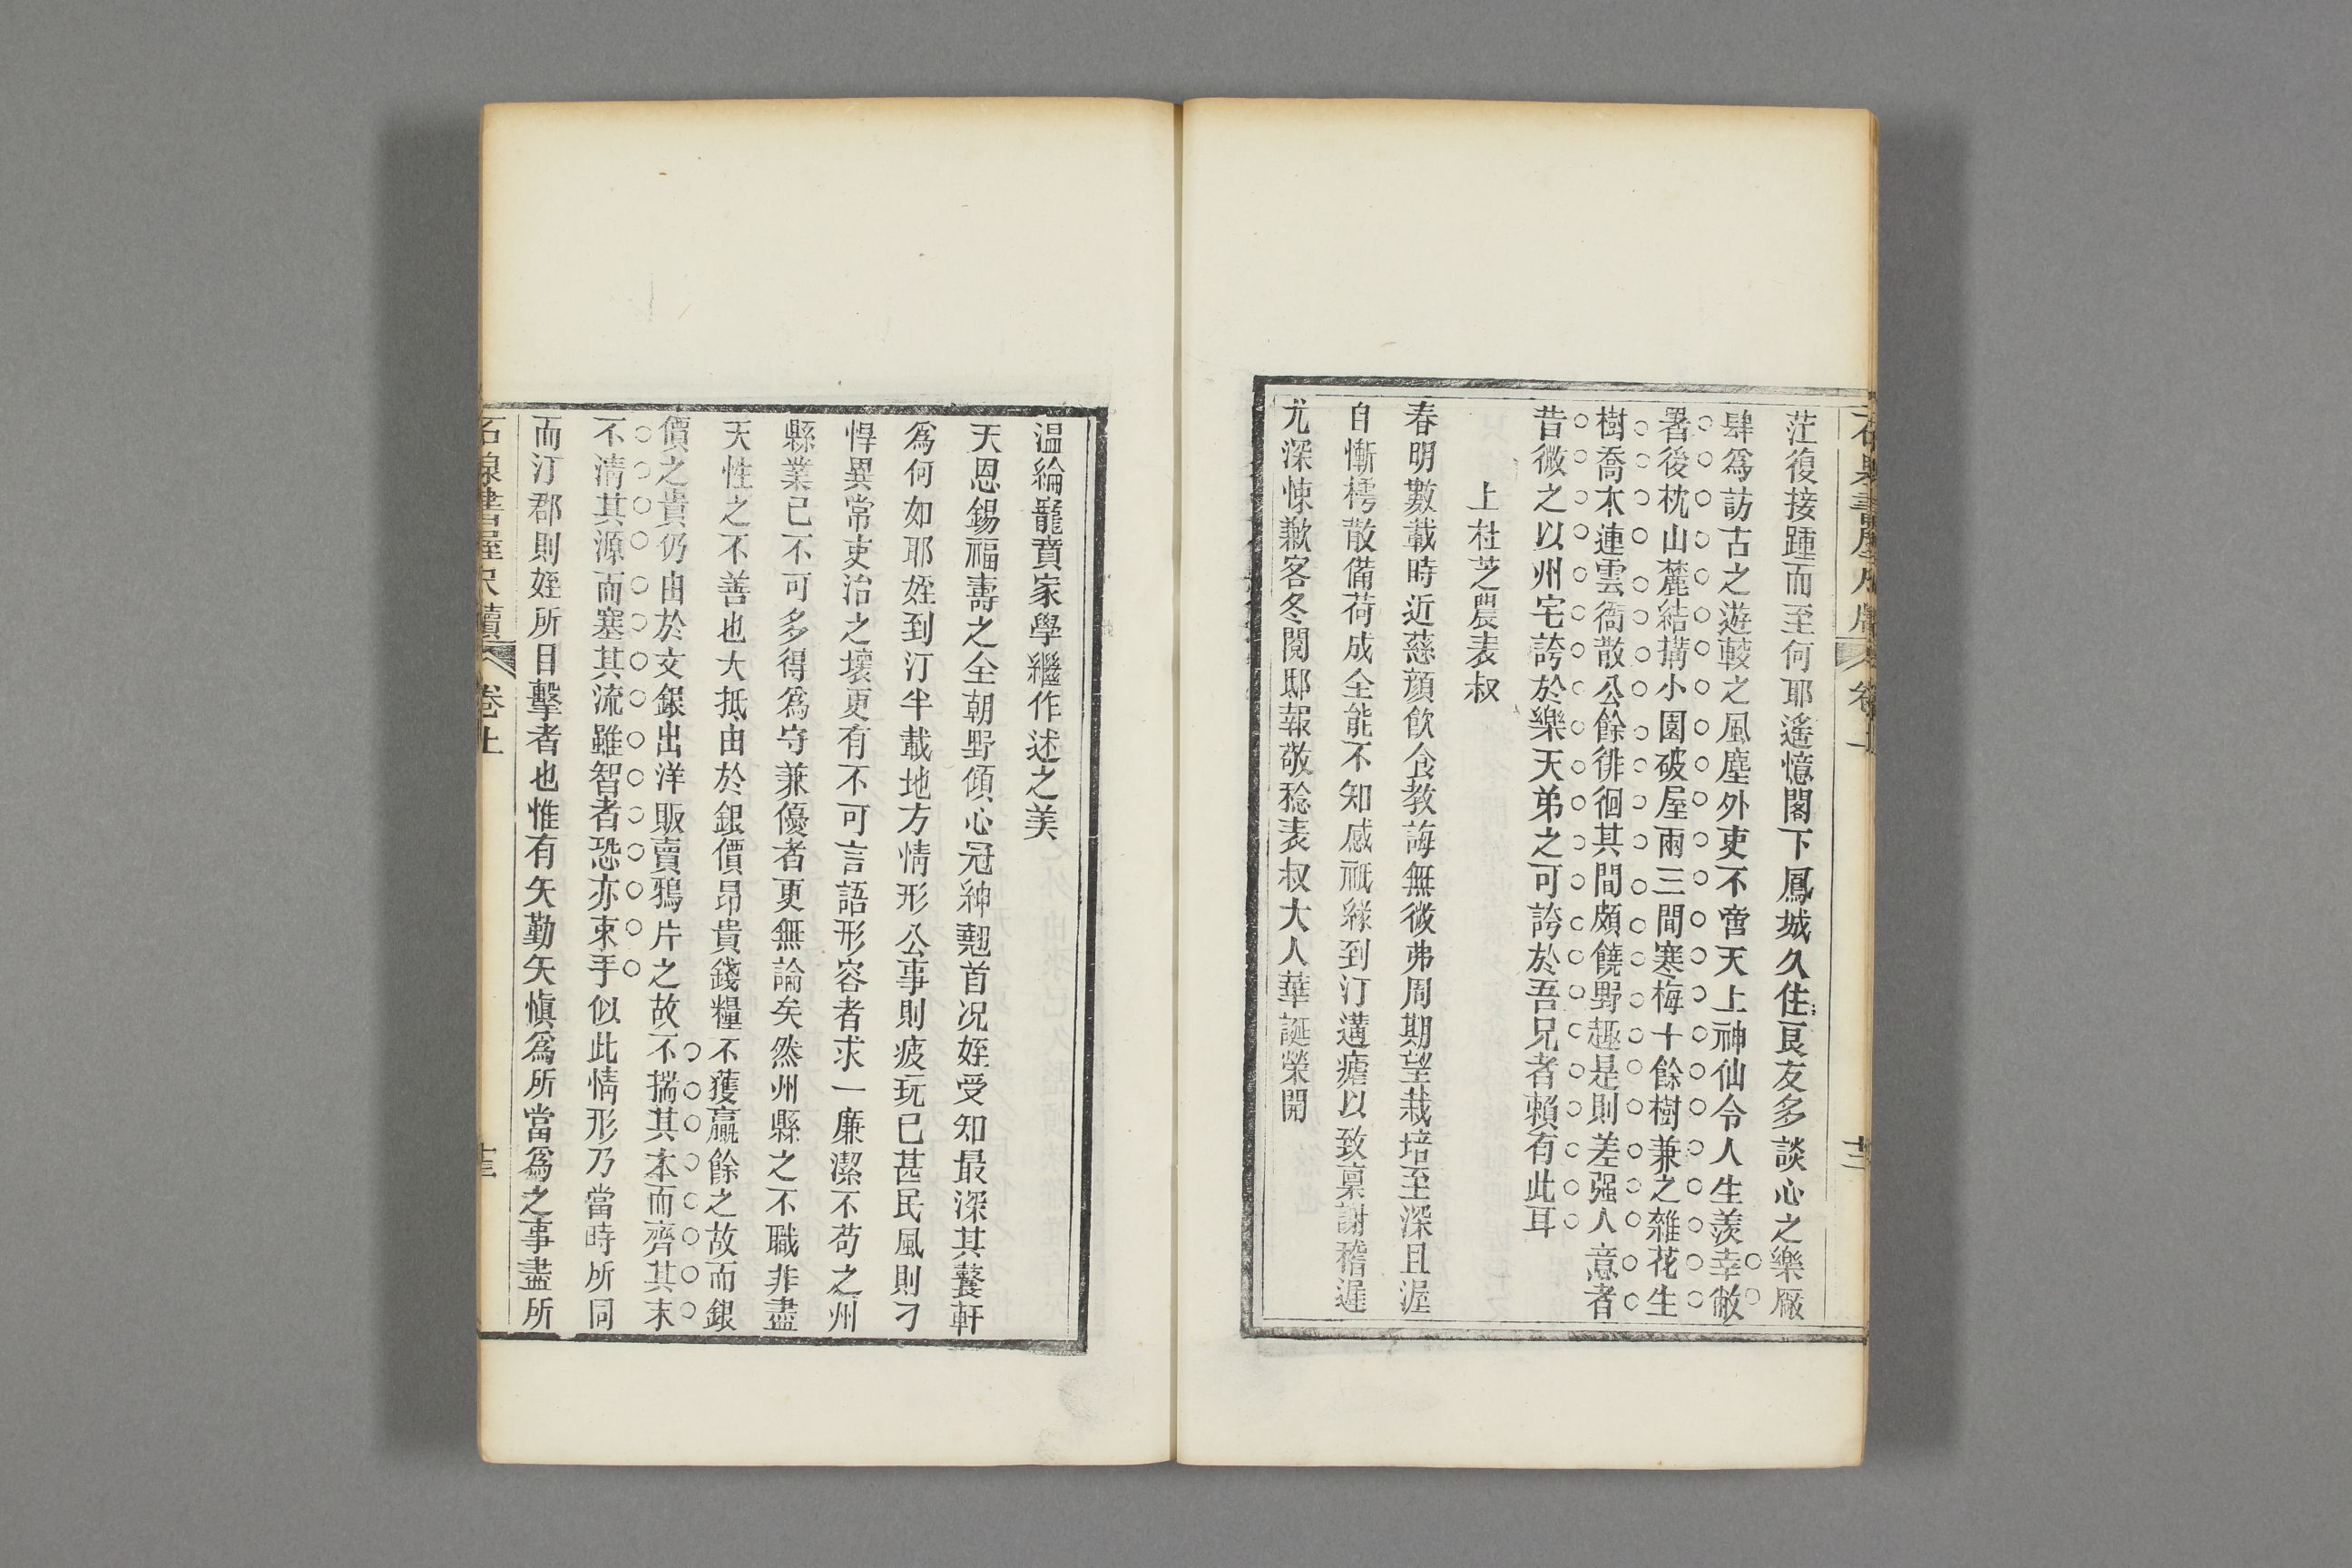 茫復接踵而至何耶遙憶閣下鳳城久住良友多談心之樂廠
肆爲訪古之遊輭之風塵外吏不啻天上神仙令人生羨幸敝
署後枕山麓結搆小園破屋雨三間寒梅十餘樹兼之雜花生
樹喬木連雲衙散公餘徘徊其間頗饒野趣是則差强人意者
昔微之以州宅誇於樂天弟之可誇於吾兄者賴有此耳
上杜芝農表叔
春明數載時近慈顔飲食教誨無微弗周期望栽培至深且渥
自慚樗散備荷成全能不知感祇緣到汀遘瘧以致稟謝稽遲
尤深悚歉客冬閱邸報敬稔表叔大人華誕榮開
温綸寵賁家學繼作述之美
天恩錫福壽之全朝野傾心冠紳翹首况姪受知最深其鼚軒
爲何如耶姪到汀半載地方情形公事則疲玩已甚民風則刁
悍異常吏治之壞更有不可言語形容者求一廉潔不苟之州
縣業已不可多得爲守兼優者更無論矣然州縣之不職非盡
天性之不善也大抵由於銀價昂貴錢糧不獲贏餘之故而銀
價之貴仍由於文銀出洋販賣鴉片之故不揣其本而齊其末
不清其源而塞其流雖智者恐亦束手似此情形乃當時所同
而汀郡則姪所目擊者也惟有矢勤矢愼爲所當爲之事盡所
卷上